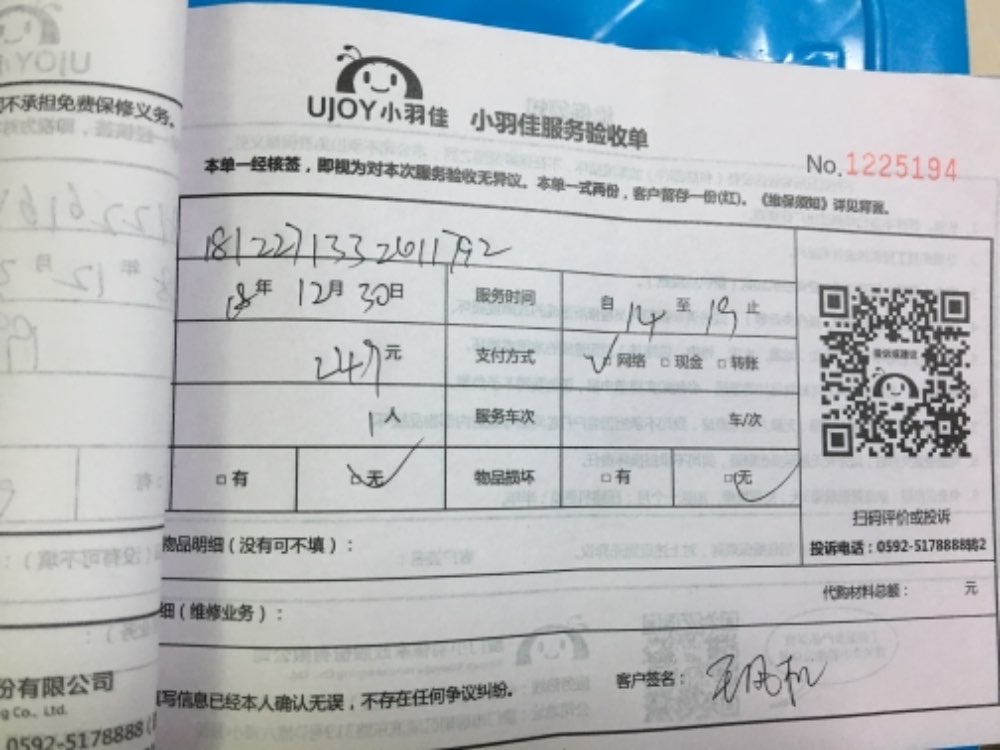 不承担免费保修义务。
UJOY小羽佳 小羽佳服务验收单
No.1225194
本单一经核签，即视为对本次服务验收无异议。本单一式两份，客户留存一份(红)。《维保须知》详见背面。
1812271332611792
18年 12月 30日 服务时间 自 14 至 19 止
249元 支付方式 ✓□网络 □现金 □转账
1人 服务车次 车/次
□有 □无 物品损坏 □有 □无
扫码评价或投诉
投诉电话：0592-5178888转2
物品明细（没有可不填）：
代购材料总额： 元
细（维修业务）：
份有限公司
g Co., Ltd.
写信息已经本人确认无误，不存在任何争议纠纷。 客户签名：
0592-5178888